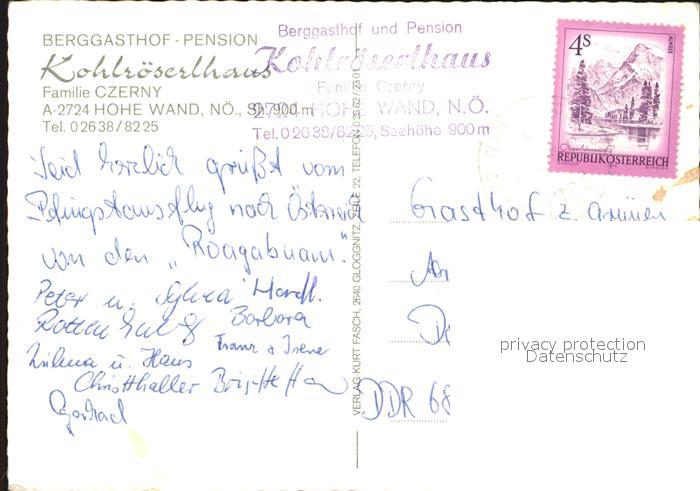 BERGGASTHOF - PENSION
Kohlröserlhaus
Familie CZERNY
A-2724 HOHE WAND, NÖ., SH 900 m
Tel. 0 26 38 / 82 25
Berggasthof und Pension
Kohlröserlhaus
Familie Czerny
2724 HOHE WAND, N.Ö.
Tel. 0 26 38/8225, Seehöhe 900 m
4S
REPUBLIK ÖSTERREICH
Seid herzlich grüßt vom
Pfingstausflug nach Österreich
von den „Roagabuam."
Peter u. Sylvia
Barbara
Franz + Irene
u. Hans
Christhaller Brigitte
Gerhard
VERLAG KURT FASCH, 2640 GLOGGNITZ, ZEILE 22, TELEFON
Gasthof z grünen
An
D
DDR 68
privacy protection
Datenschutz